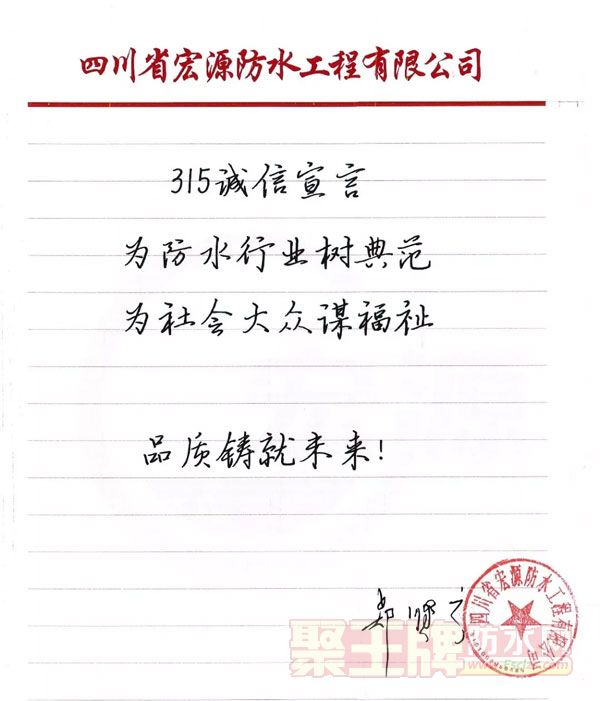 四川省宏源防水工程有限公司
315诚信宣言
为防水行业树典范
为社会大众谋福祉
品质铸就未来!
四川省宏源防水工程有限公司
聚王牌防水网